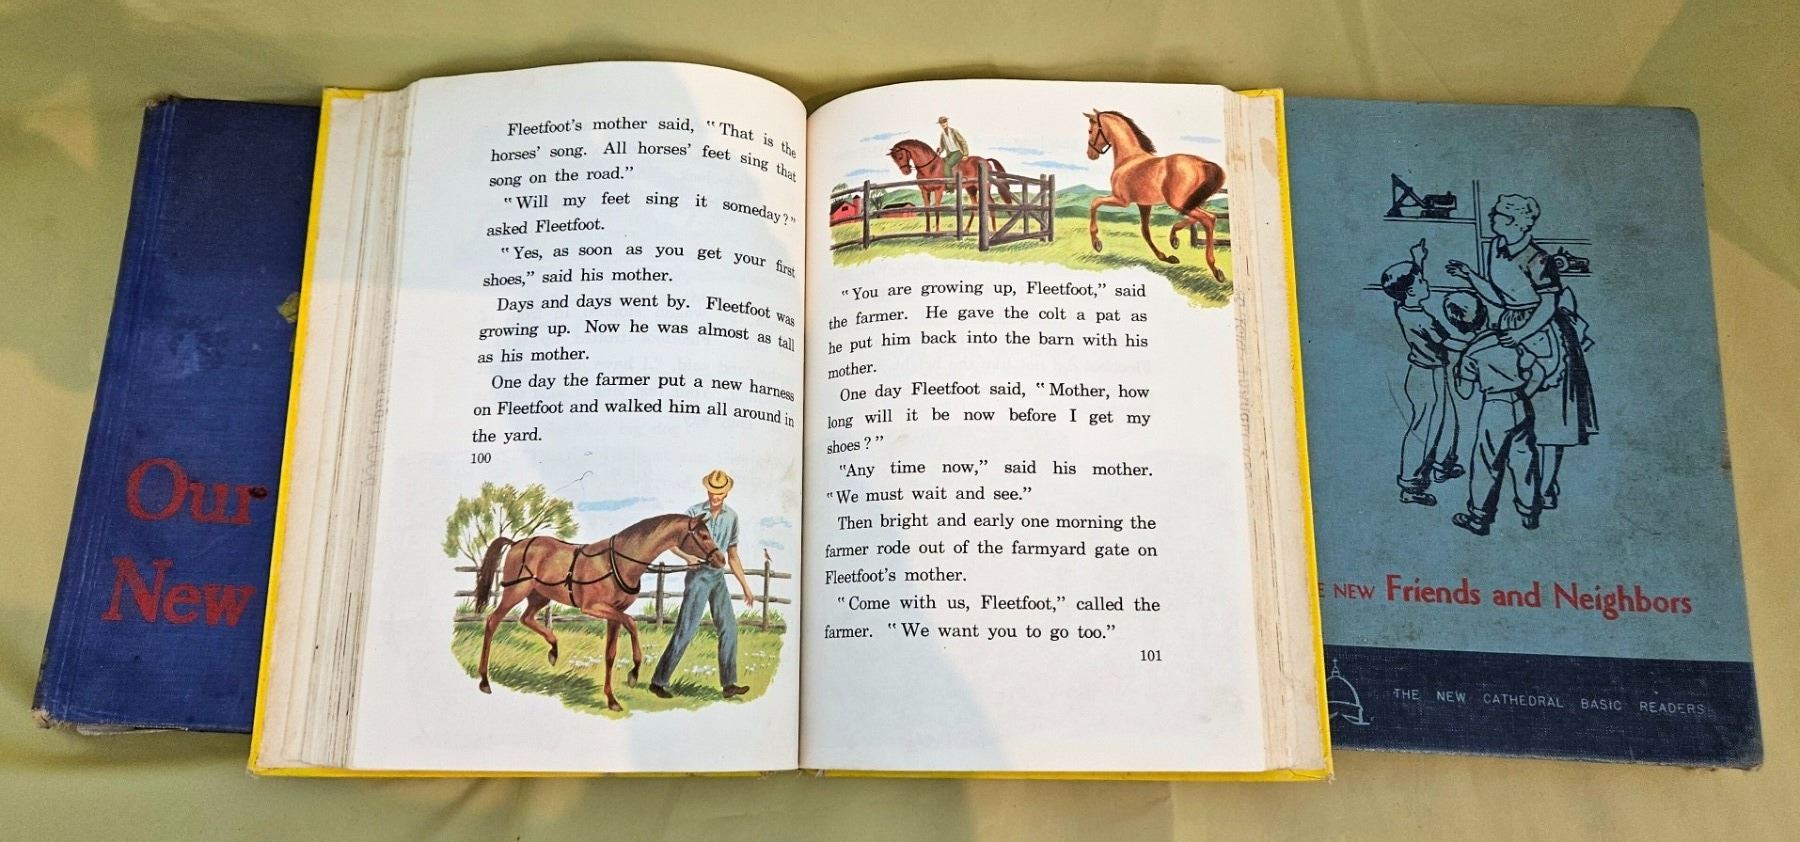 Our
New
Fleetfoot's mother said, "That is the
horses' song. All horses' feet sing that
song on the road."
"Will my feet sing it someday?"
asked Fleetfoot.
"Yes, as soon as you get your first
shoes," said his mother.
Days and days went by. Fleetfoot was
growing up. Now he was almost as tall
as his mother.
One day the farmer put a new harness
on Fleetfoot and walked him all around in
the yard.
100
"You are growing up, Fleetfoot," said
the farmer. He gave the colt a pat as
he put him back into the barn with his
mother.
One day Fleetfoot said, "Mother, how
long will it be now before I get my
shoes?"
"Any time now," said his mother.
"We must wait and see."
Then bright and early one morning the
farmer rode out of the farmyard gate on
Fleetfoot's mother.
"Come with us, Fleetfoot," called the
farmer. "We want you to go too."
101
NEW Friends and Neighbors
THE NEW CATHEDRAL BASIC READERS